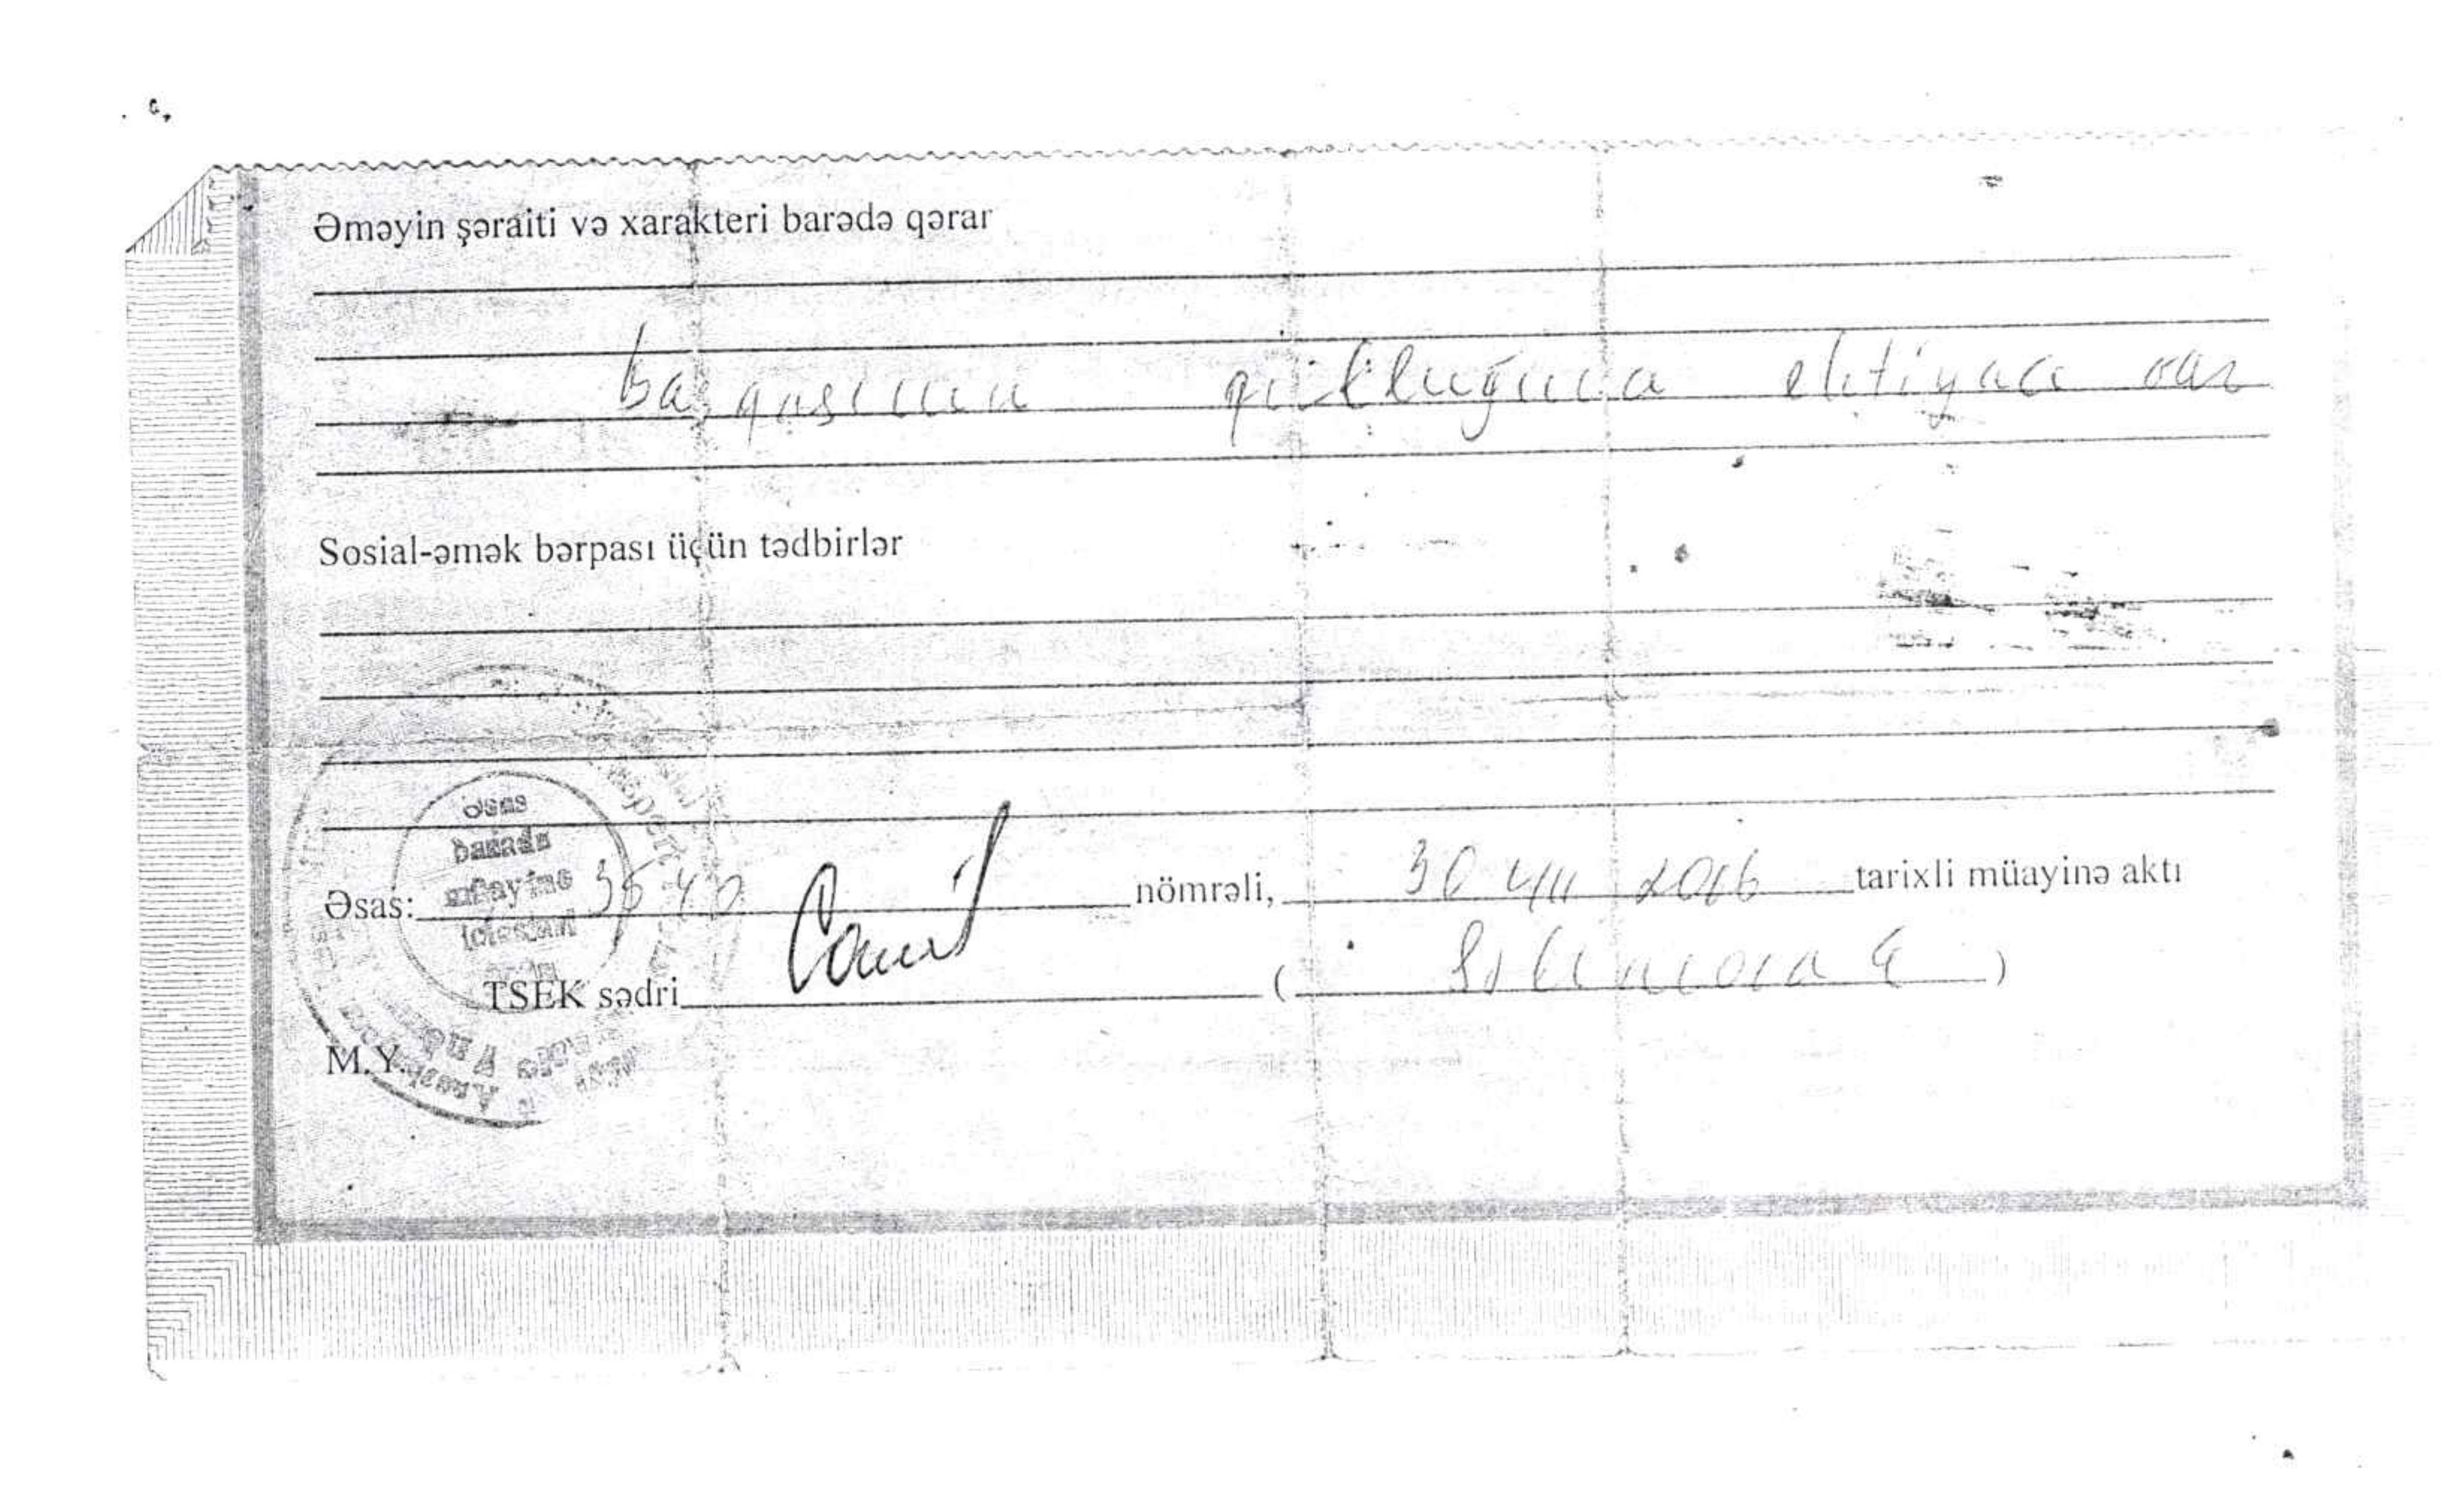 Əməyin şəraiti və xarakteri barədə qərar
başqasının qulluğuna ehtiyacı var
Sosial-əmək bərpası üçün tədbirlər
Əsas: 3540 nömrəli, 30 VIII 2016 tarixli müayinə aktı
TSEK sədri ( )
M.Y.
əsas
barədə
müayinə